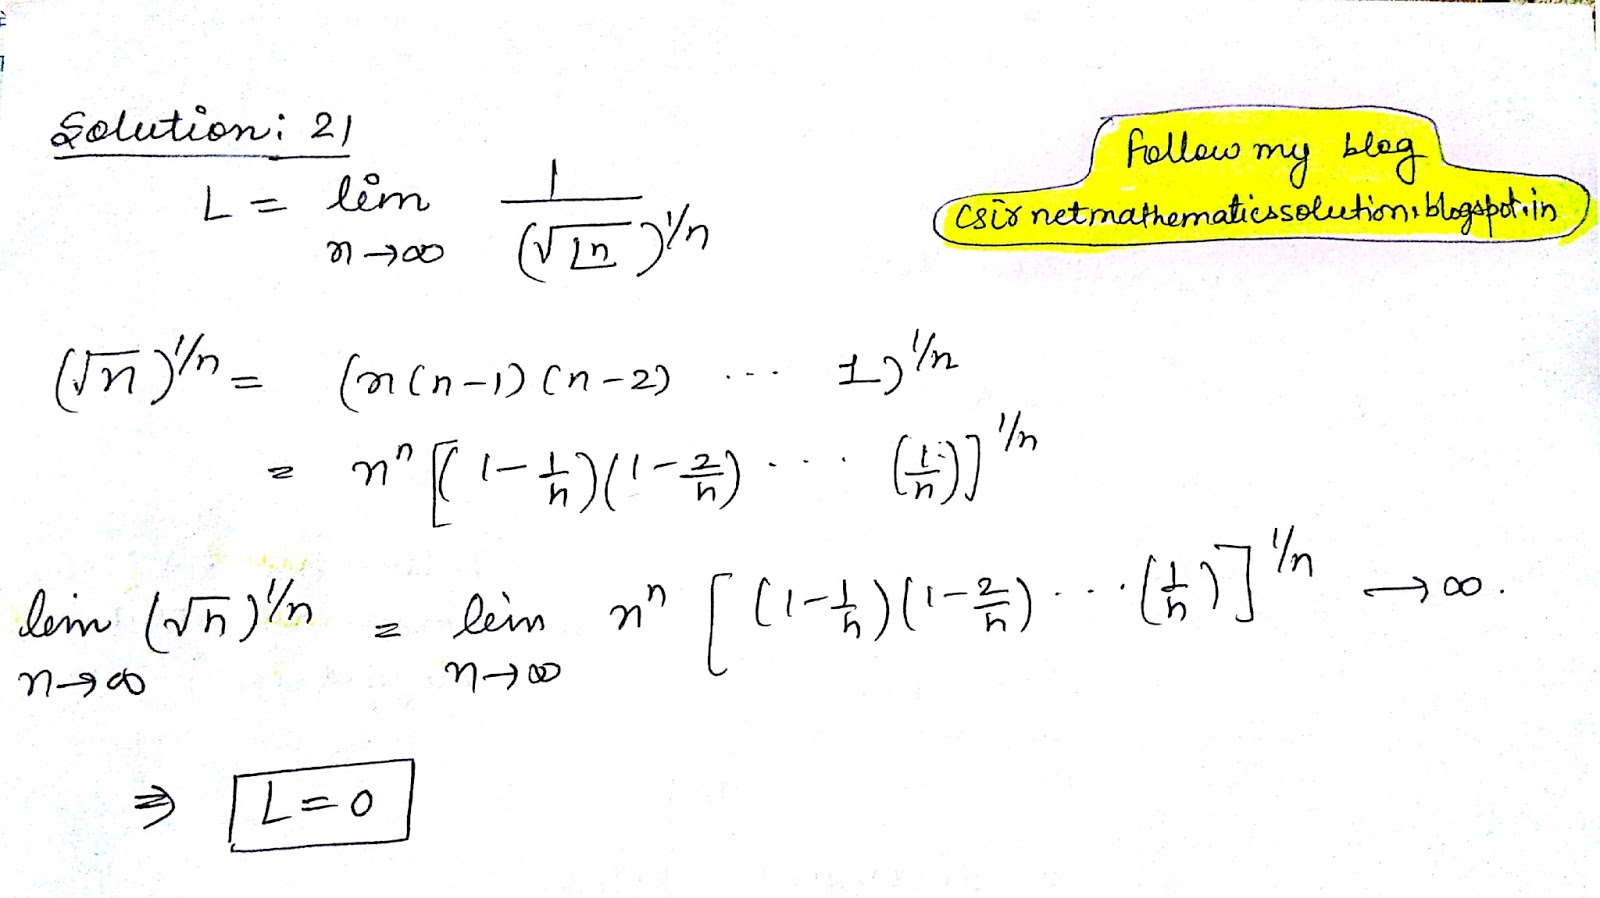 Solution: 21
Follow my blog
csir netmathematicssolution.blogspot.in
L = lim n→∞ 1/(√⌊n)^1/n
(√n)^1/n = (n(n-1)(n-2) ... 1)^1/n
= n^n [(1-1/n)(1-2/n) ... (1/n)]^1/n
lim n→∞ (√n)^1/n = lim n→∞ n^n [(1-1/n)(1-2/n) ... (1/n)]^1/n → ∞.
⇒ L = 0